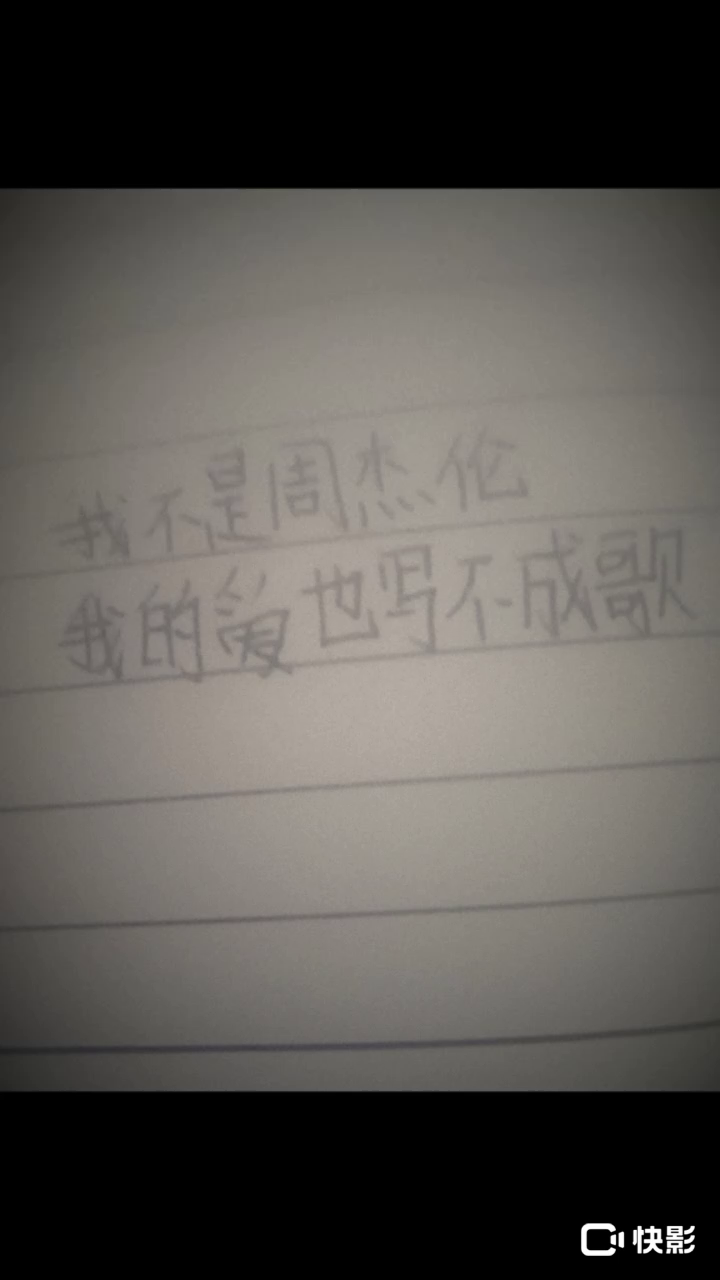 我不是周杰伦
我的爱也写不成歌
快影